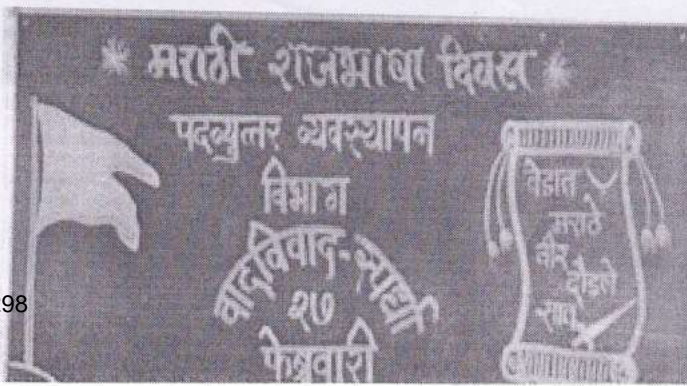 * मराठी राजभाषा दिवस *
पदव्युत्तर व्यवस्थापन
विभाग
वादविवाद-स्पर्धा
२७
फेब्रुवारी
वेडात
मराठे
वीर
दौडले
सात
298